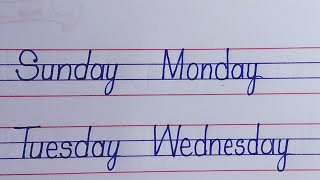 Sunday Monday
Tuesday Wednesday